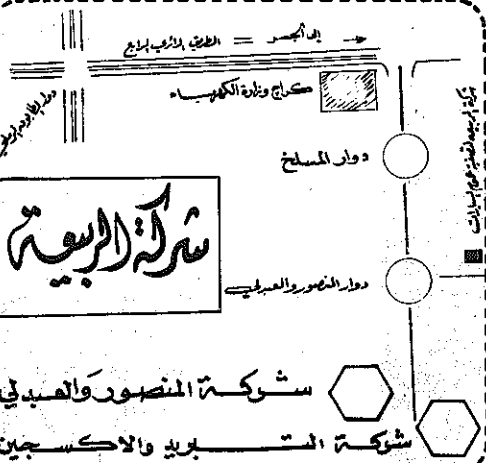 إلى الجسر = الطريق الدائري الرابع
كراج وزارة الكهربـــاء
دوار المسلخ
شركة الربيعة
دوار المنصور والعبدلي
شركة المنصور والعبدلي
شركة التبريد والاكسجين